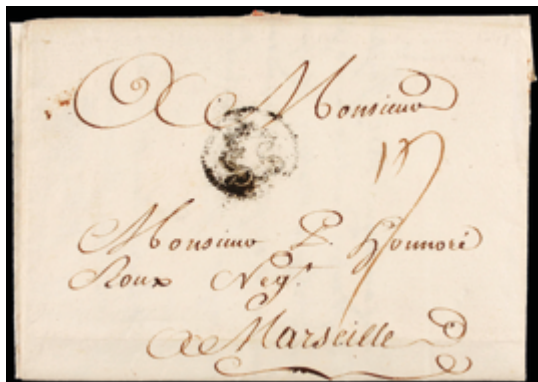 A Monsieur
Monsieur P. Honnoré
Roux Negt.
A Marseille